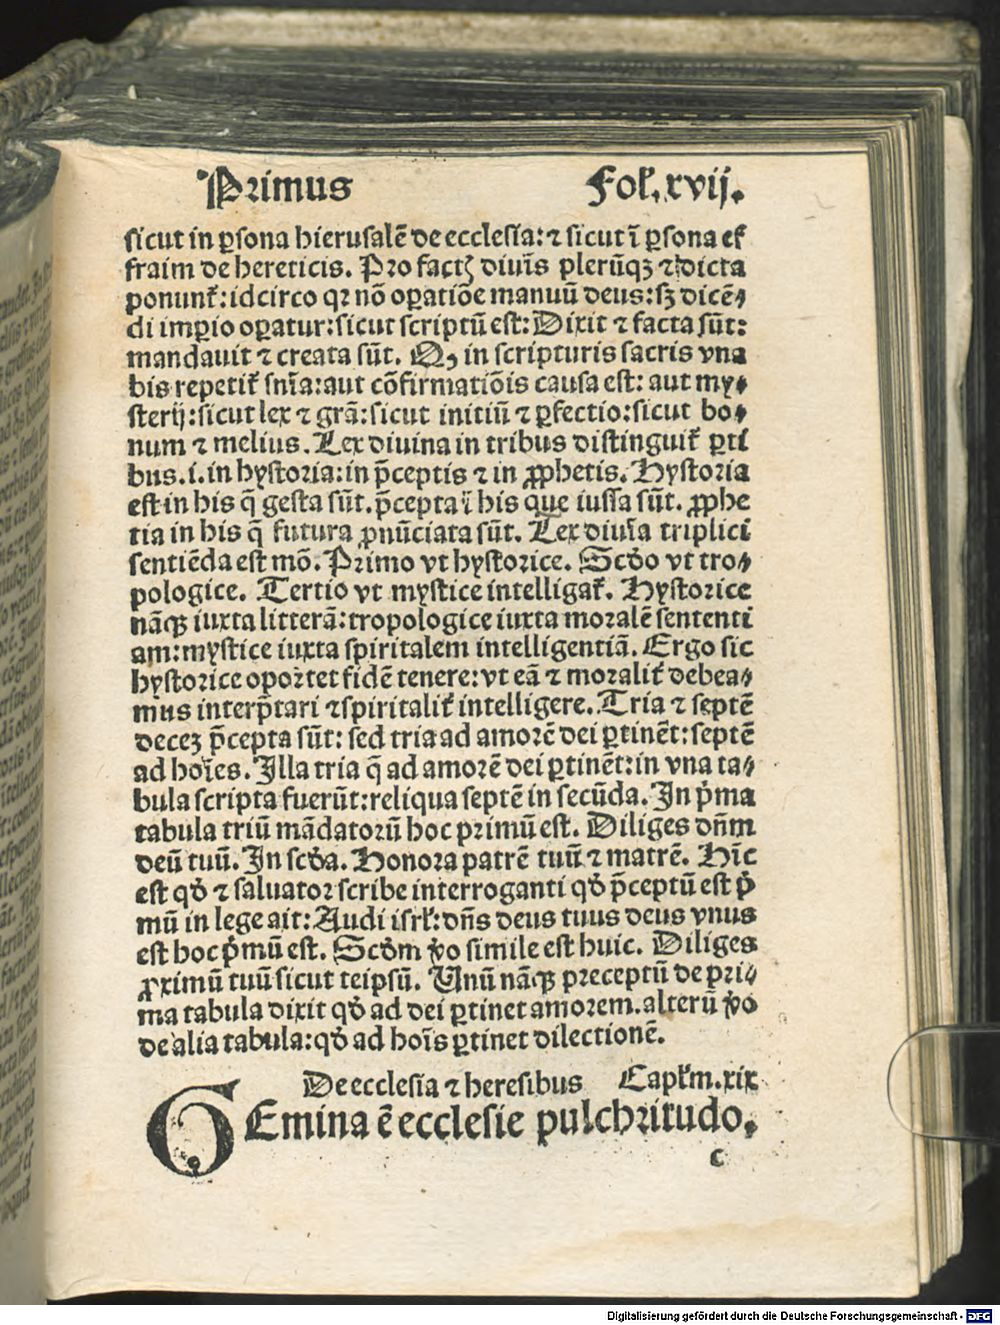 Primus Fol. xvij.
sicut in ꝑsona hierusalē de ecclesia: ⁊ sicut ī ꝑsona ef
fraim de hereticis. Pro factꝭ diuīs plerūqꝫ ⁊ dicta
ponunt᷑: idcirco qꝛ nō oꝑatiōe manuū deus: sꝫ dicē⸗
di imꝑio oꝑatur: sicut scriptū est: Dixit ⁊ facta sūt:
mandauit ⁊ creata sūt. Qꝫ in scripturis sacris vna
bis repetit᷑ snīa: aut cōfirmatiōis causa est: aut my⸗
sterij: sicut lex ⁊ grā: sicut initiū ⁊ ꝑfectio: sicut bo⸗
num ⁊ melius. Lex diuina in tribus distinguit᷑ ꝑti
bus .i. in hystoria: in p̄ceptis ⁊ in ꝓphetis. Hystoria
est in his q̄ gesta sūt. p̄cepta ī his que iussa sūt. ꝓphe
tia in his q̄ futura ꝓnūciata sūt. Lex diuīa triplici
sentiēda est mō. Primo vt hystorice. Scd̓o vt tro⸗
pologice. Tertio vt mystice intelligat᷑. Hystorice
nāqꝫ iuxta litterā: tropologice iuxta moralē sententi
am: mystice iuxta spiritalem intelligentiā. Ergo sic
hystorice oportet fidē tenere: vt eā ⁊ moralit᷑ debea⸗
mus interp̄tari ⁊ spiritalit᷑ intelligere. Tria ⁊ septē
decē p̄cepta sūt: sed tria ad amorē dei ꝑtinēt: septē
ad hoīes. Illa tria q̄ ad amorē dei ꝑtinēt: in vna ta⸗
bula scripta fuerūt: reliqua septē in secūda. In p̓ma
tabula triū mādatorū hoc primū est. Diliges dn̄m
deū tuū. In scd̓a. Honora patrē tuū ⁊ matrē. Hīc
est qd̓ ⁊ saluator scribe interroganti qd̓ p̄ceptū est p̓
mū in lege ait: Audi isrl̓: dn̄s deus tuus deus vnus
est hoc p̓mū est. Scd̓m v̓o simile est huic. Diliges
ꝓximū tuū sicut teipsū. Unū nāqꝫ preceptū de pri⸗
ma tabula dixit qd̓ ad dei ꝑtinet amorem. alterū v̓o
de alia tabula: qd̓ ad hoīs ꝑtinet dilectionē.
De ecclesia ⁊ heresibus Capl̓m. xix
GEmina ē ecclesie pulchritudo.
c
Digitalisierung gefördert durch die Deutsche Forschungsgemeinschaft - DFG